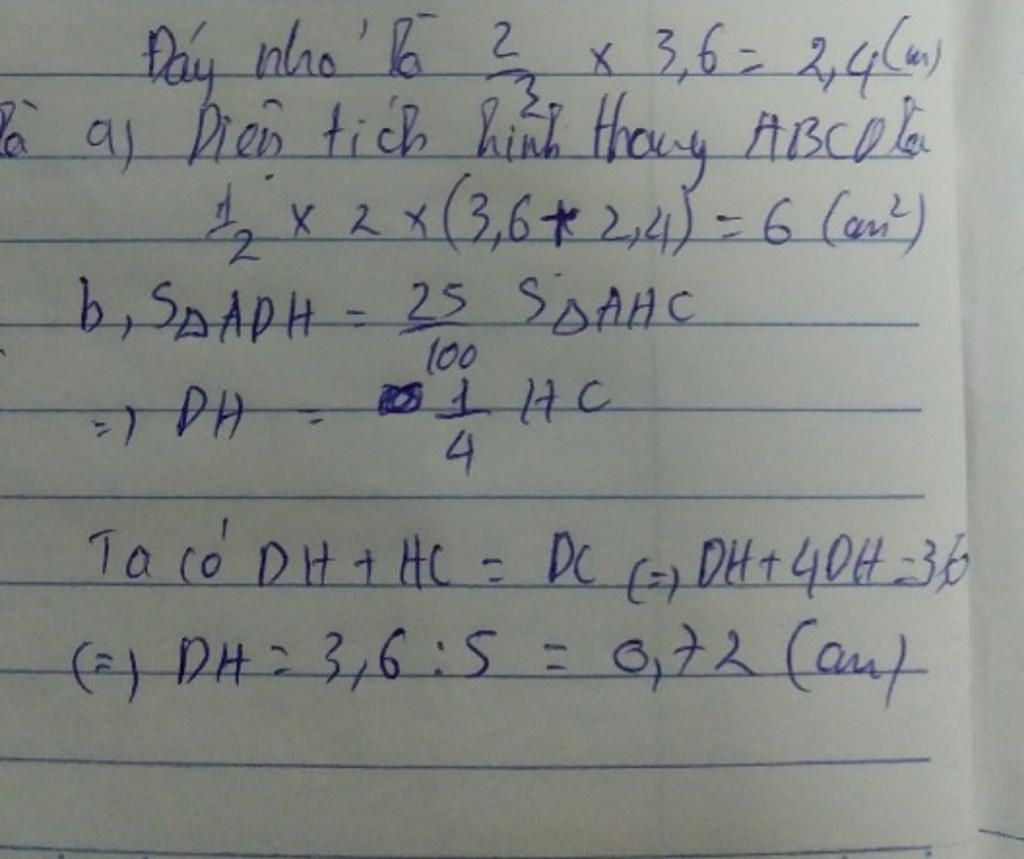 Đáy nhỏ là 2/3 x 3,6 = 2,4 (cm)
là a) Diện tích hình thang ABCD là
1/2 x 2 x (3,6 + 2,4) = 6 (cm²)
b, SΔADH = 25/100 SΔAHC
=) DH = 1/4 HC
Ta có DH + HC = DC (=) DH + 4DH = 3,6
(=) DH = 3,6 : 5 = 0,72 (cm)